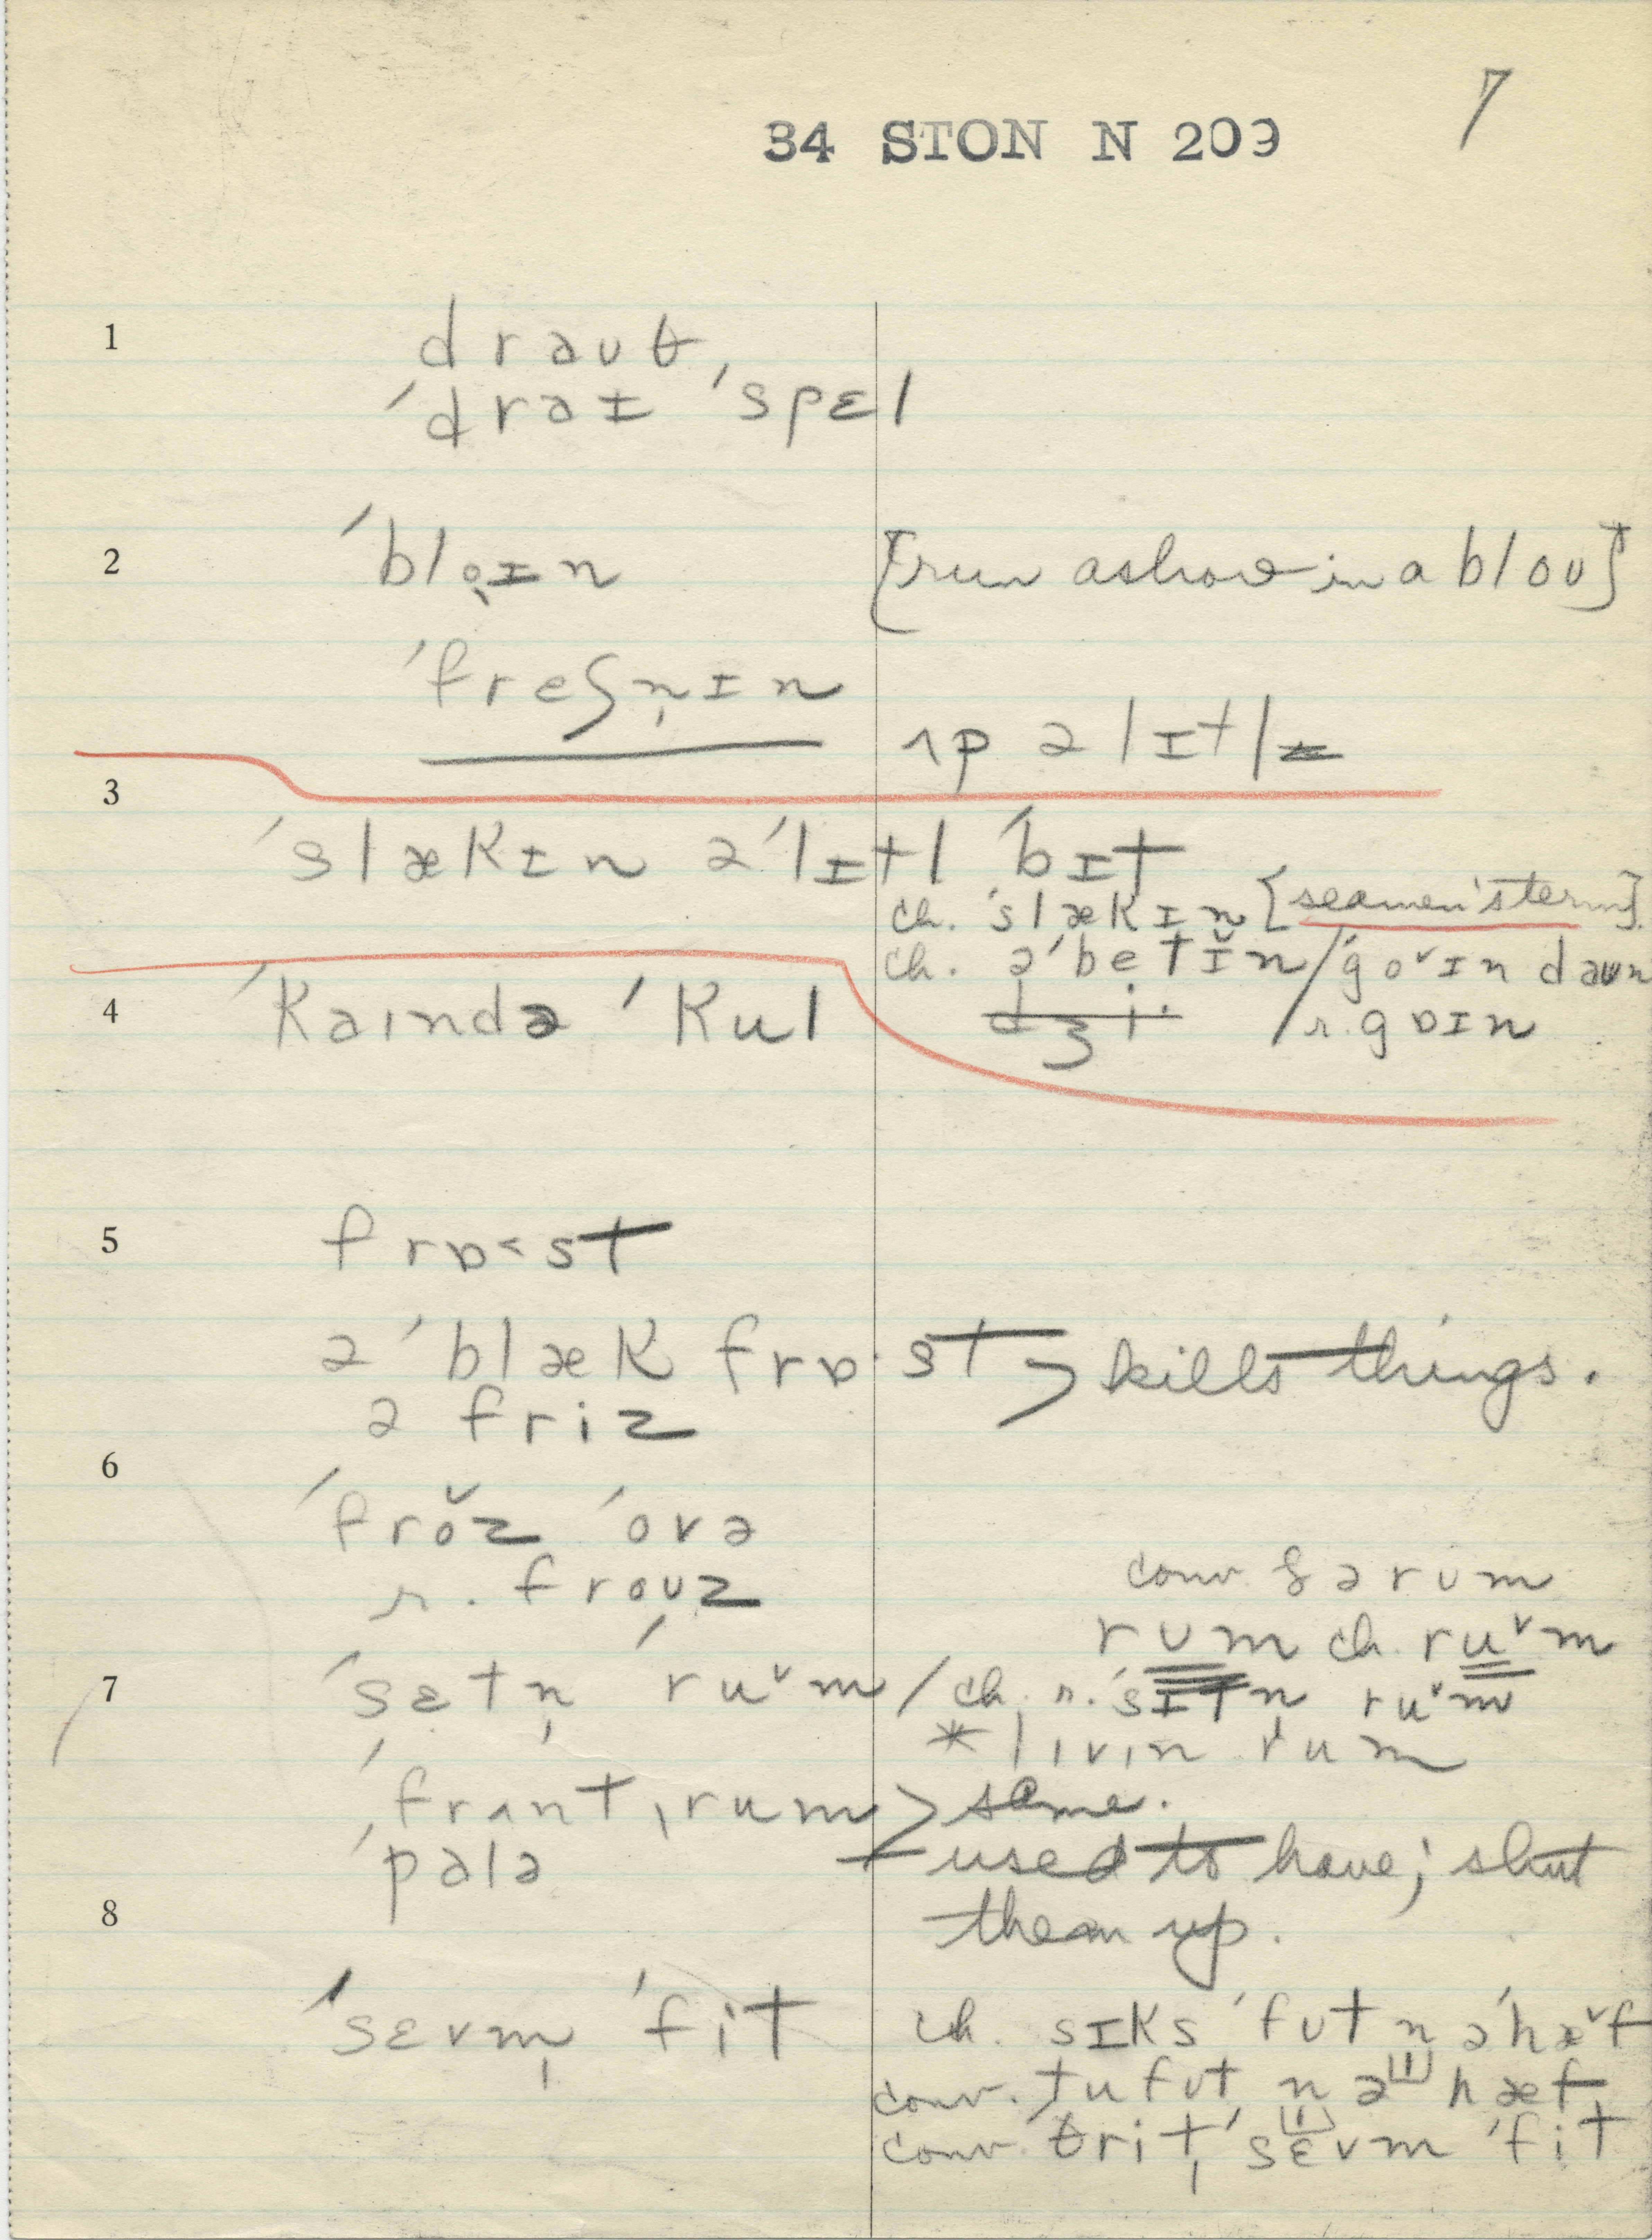 7
34 STON N 209
1
draʊθ
ˈdraɪ ˈspɛl
2 ˈblo̜ɪn [run ashore in a bloʊ]
ˈfreʃn̩ɪn
ʌp ə lɪtl
3
ˈslækɪn əˈlɪtl ˈbɪt
ch. ˈslækɪn [seamen's term]
ch. əˈbetɪ̆n / ˈgoᵛɪn daʊn
4 ˈkaɪndə ˈkul / r. gɒɪn
5 frɒ˂st
ə ˈblæk frɒ·st > kills things.
ə friz
6
ˈfrŏz ˈovə
r. froʊz
conv. & ə rʊm
rʊm ch. ruᵛm
7 ˈsɛtn̩ ˈruᵛm / ch. r. ˈsɪtn ruᵛm
* lɪvɪn rum
ˈfrʌntˌrum > same.
ˈpalə used to have; shut
8 them up.
ˈsɛvm̩ ˈfit ch. sɪks ˈfʊt n əˈhæᵛf
conv. tu fʊt n ə hæf
conv. θrit, ˈsɛvm ˈfit